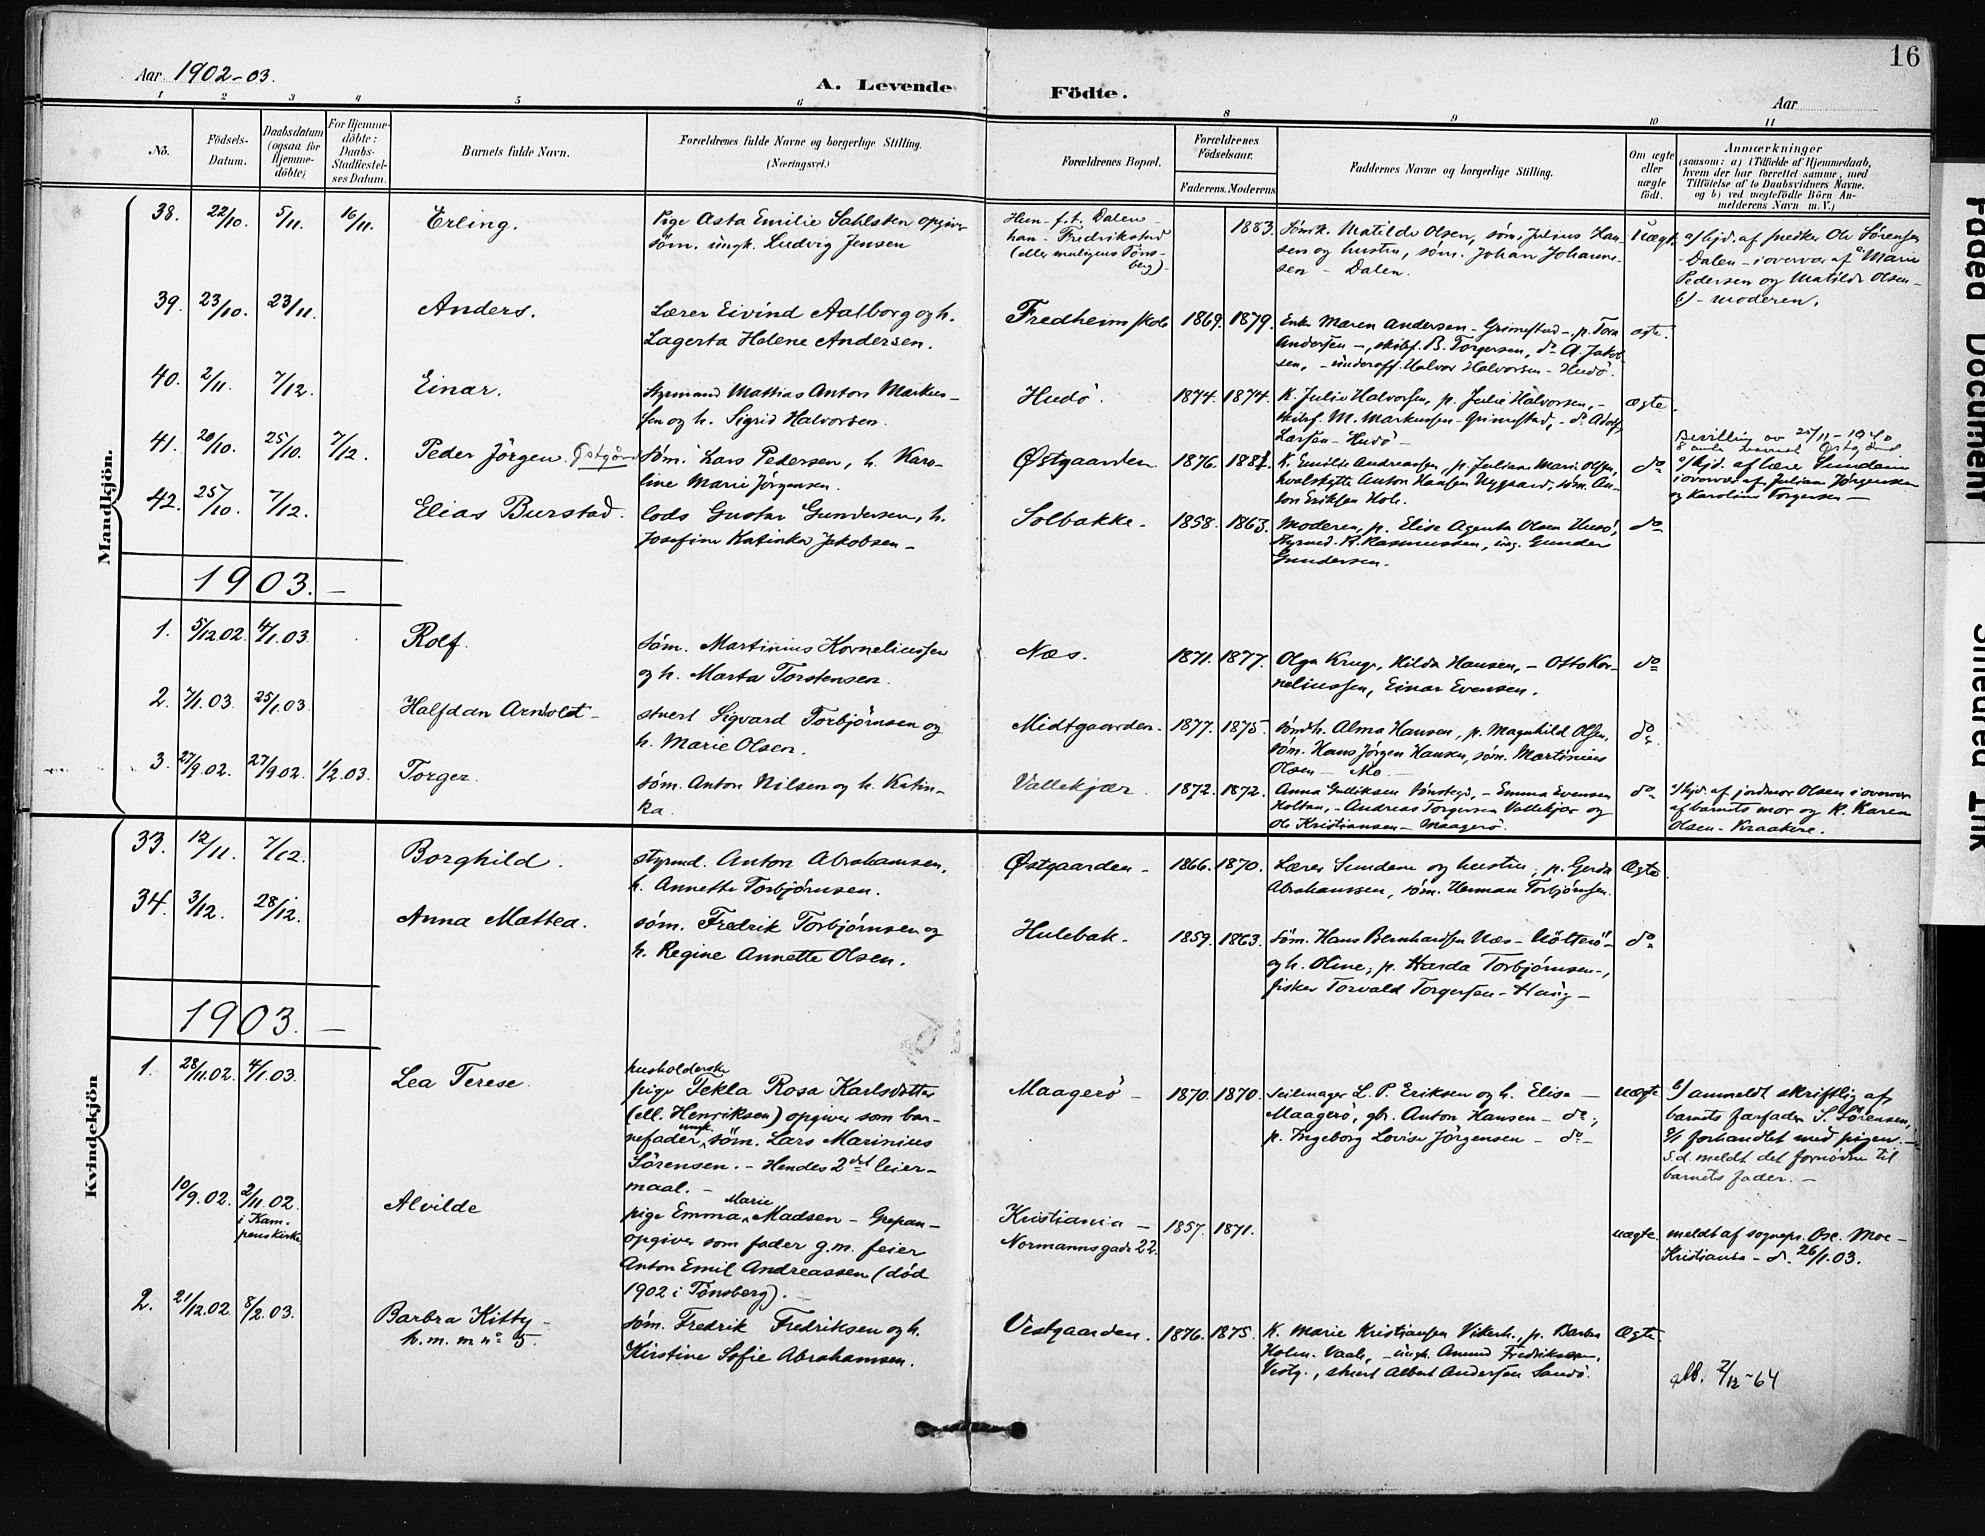 Aar 1902-03.
A. Levende Födte.
16
Aar
1 2 3 4 5 6 8 9 10 11
No.
Födsels-Datum.
Daabsdatum (ogsaa for Hjemme-döbte)
For Hjemme-döbte: Daabs-Stadfæstel-ses Datum.
Barnets fulde Navn.
Forældrenes fulde Navne og borgerlige Stilling. (Næringsvei.)
Forældrenes Bopæl.
Forældrenes Födselsaar.
Faderens. Moderens
Faddernes Navne og borgerlige Stilling.
Om ægte eller uægte födt.
Anmærkninger
(saasom: a) i Tilfælde af Hjemmedaab,
hvem der har forrettet samme, med
Tilföielse af to Daabsvidners Navne.
og b) ved uægtefödte Börn An-
melderens Navn m. V.)
Mandkjön.
38. 22/10. 5/11. 16/11. Erling.
Pige Asta Emilie Sahlsten opgiver
søm. ungk. Ludvig Jensen
Hun - f. t. Dalen -
han - Fredrikstad
(eller muligens Töns-
berg).
1883.
Sømk. Matilde Olsen, søm. Julius Han-
sen og hustru, søm. Johan Johann-
sen - Dalen.
Uægte
a/ hjd. af snedker Ole Sörensen
- Dalen - i overvær af Marie
Pedersen og Matilde Olsen -
b/ - moderen.
39. 23/10. 23/11. Anders.
Lærer Eivind Aalborg og h.
Lagerta Helene Andersen.
Fredheim skole 1869. 1879.
Enke Maren Andersen - Grimestad -, p. Tora
Andersen -, skibsf. B. Torgersen, do A. Jakob-
sen, - underoff. Halvor Halvorsen - Hudö.
ægte.
40. 2/11. 7/12. Einar.
styrmand Mathias Anton Markus-
sen og h. Sigrid Halvorsen.
Hudö. 1874. 1874.
K. Julie Halvorsen, p. Julie Halvorsen, -
skibsf. M. Markussen - Grimestad, - do Adolf
Larsen - Hudö -
ægte.
41. 20/10. 25/10. 7/12. Peder Jörgen. Østgård
søm. Lars Pedersen, h. Karo-
line Marie Jørgensen.
Østgaarden 1876. 1881.
K. Emilie Andreassen, p. Juliane Marie Olsen,
hvalskytte Anton Hansen Nygaard, søm. An-
ton Eriksen Hole.
do
Bevilling av 25/11-1940
a/ hjd. af lærer Sundene
i overvær af Juliane Jørgensen
og Karoline Torgersen -
42. 25/10. 7/12. Elias Burstad.
lods Gustav Gundersen, h.
Josefine Katinka Jakobsen -
Solbakke. 1858. 1863.
Moderen, p. Elise Agenta Olsen Husö,
styrmd. R. Rasmussen, ung. Gunder
Gundersen.
do
1903. -
1. 5/12 02. 4/1. 03. Rolf.
søm. Martinius Korneliussen
og h. Marta Torstensen.
Næs. 1871. 1877.
Olga Kruge, Hilda Hansen, - Otto Kor-
neliussen, Einar Evensen.
do
2. 7/1. 03. 25/1. 03. Halfdan Arnoldt -
stuert Sigvard Torbjörnsen og
h. Marie Olsen.
Midtgaarden. 1877. 1875.
sømh. Alma Hansen, p. Magnhild Olsen,
søm. Hans Jørgen Hansen, søm. Martinius
Olsen - Mo -
do
3. 27/9. 02. 27/9 02. 1/2. 03. Torger.
søm. Anton Nilsen og h. Katin-
ka.
Vallekjær. 1872. 1872.
Anna Gulliksen, - Emma Evensen
Holtan, - Andreas Torgersen Vallekjær og
Ole Kristiansen - Maagerö.
do
a/ hjd. af jordmor Olsen i overvær
af barnets mor og K. Karen
Olsen - Kraakere.
Kvindekjön
33. 12/11. 7/12. Borghild.
styrmd. Anton Abrahamsen,
h. Annette Torbjörnsen.
Østgaarden - 1866. 1870.
Lærer Sundene og hustru, p. Gerda
Abrahamsen, søm. Herman Torbjörnsen.
Ægte.
34. 3/12. 28/12. Anna Mattea.
søm. Fredrik Torbjörnsen og
h. Regine Annette Olsen.
Hulebak. 1859. 1863.
søm. Hans Bernhardsen Næs - Nötterö -
og h. Oline, p. Harda Torbjörnsen -,
fisker Torvald Torgersen - Haug -
do
1903. -
1. 28/11. 02. 4/1. 03. Lea Terese.
husholderske
pige Tekla Rosa Karlsdatter
(ell. Henriksen) opgiver som bar-
nefader ungk. søm. Lars Marinius
Sörensen. - Hendes 2det leier-
maal. -
Maagerö - 1870. 1870.
seilmager L. P. Eriksen og h. Elise -
Maagerö, gb. Anton Hansen - do,
p. Ingeborg Lovise Jörgensen - do -
uægte
b/ anmeldt skriftlig af
barnets farfader S. Sörensen,
forhandlet med pigen. -
s.d. meldt det fornödne til
barnets fader. -
10/9. 02. 2/11. 02. i Kam-
penskirke
Alvilde
pige Emma Marie Madsen - Grepan -
opgiver som fader g.m. feier
Anton Emil Andreassen (död
1902 i Tönsberg). -
Kristiania -
Normannsgade 22.
1857. 1871.
uægte.
meldt af sognepr. Osc. Moe -
Kristiania - d. 26/1. 03.
2. 21/12. 02. 8/2. 03. Barbra Kitty -
h. m. m. no 5.
søm. Fredrik Fredriksen og h.
Kirstine Sofie Abrahamsen.
Vestgaarden. 1876. 1875.
K. Marie Kristiansen Vikerh., p. Barbra
Holm - Vaale, - ungk. Amund Fredriksen,
Vestg., stuert Albert Andersen Sandö.
Ægte.
2/12-64
Faded Document
Smeared Ink